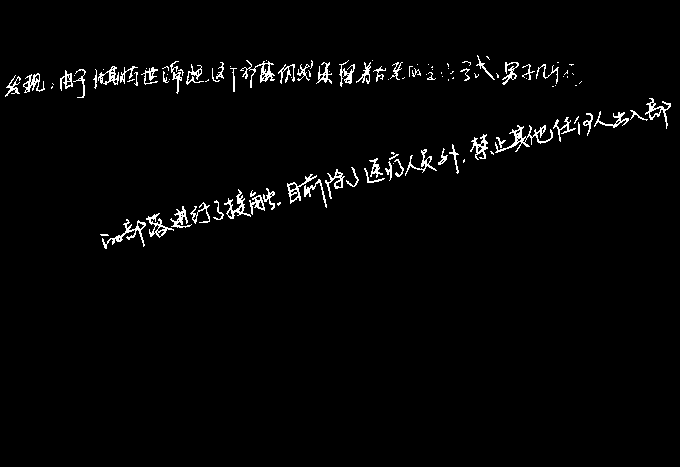 发现,由于长期与世隔绝这个部落仍然保留着古老的生活方式,男子几乎不
的部落进行了接触.目前除了医疗人员外,禁止其他任何人出入部